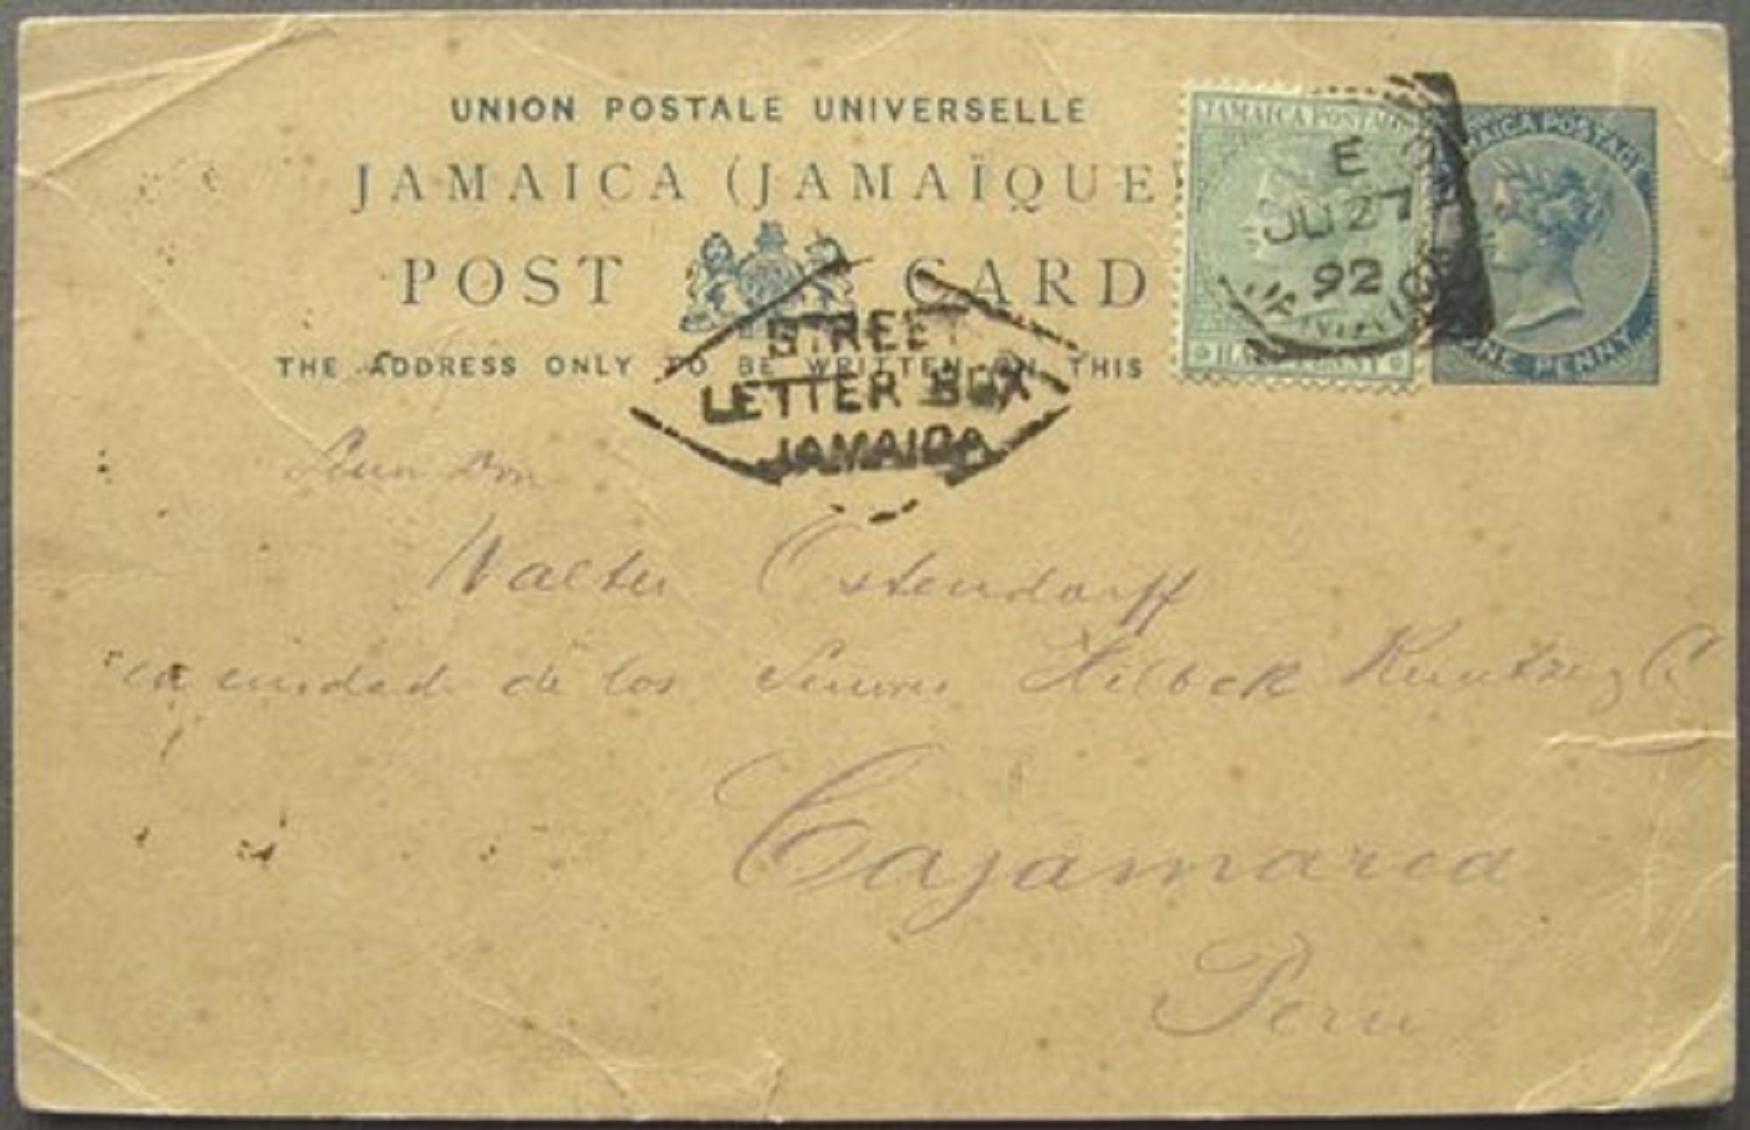 UNION POSTALE UNIVERSELLE
JAMAICA (JAMAÏQUE)
POST CARD
THE ADDRESS ONLY TO BE WRITTEN ON THIS
JAMAICA POSTAGE
HALFPENNY
JAMAICA POSTAGE
ONE PENNY
E
JU 27
92
JAMAICA
STREET
LETTER BOX
JAMAICA
Walter Ostendorff
cuidad de los Hilbck Kuntze y C
Cajamarca
Peru